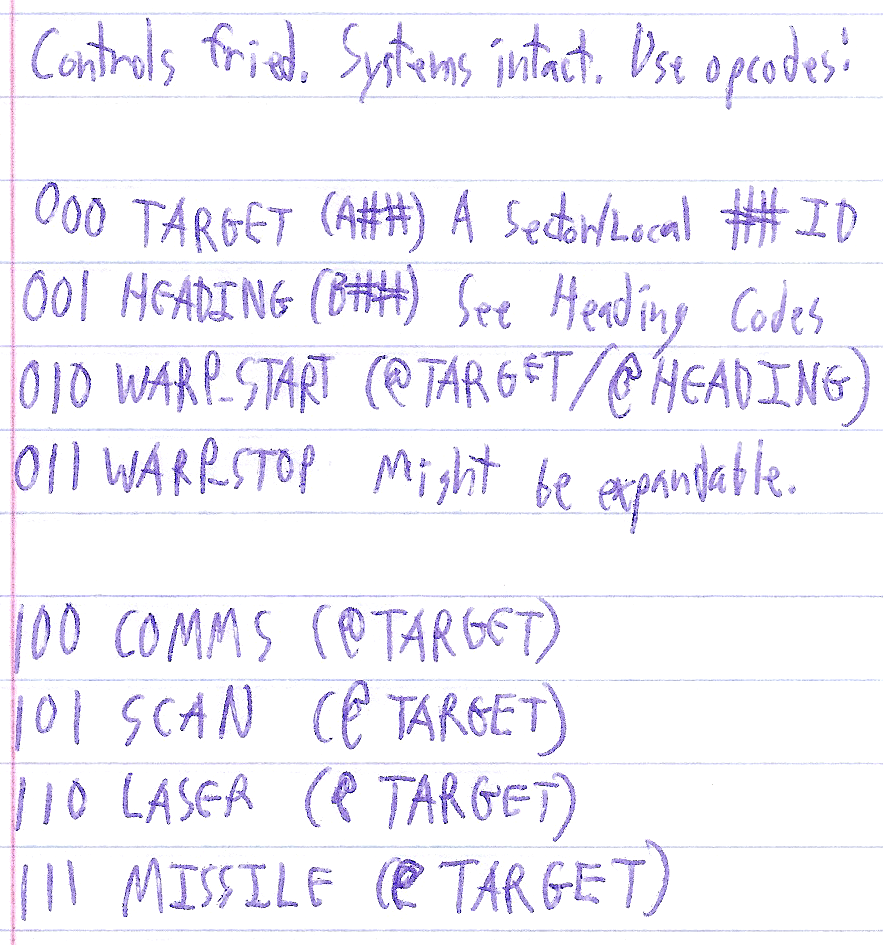 Controls fried. Systems intact. Use opcodes:
000 TARGET (A##) A Sector/Local ## ID
001 HEADING (B##) See Heading Codes
010 WARP_START (@TARGET/@HEADING)
011 WARP_STOP Might be expandable.
100 COMMS (@TARGET)
101 SCAN (@TARGET)
110 LASER (@TARGET)
111 MISSILE (@TARGET)